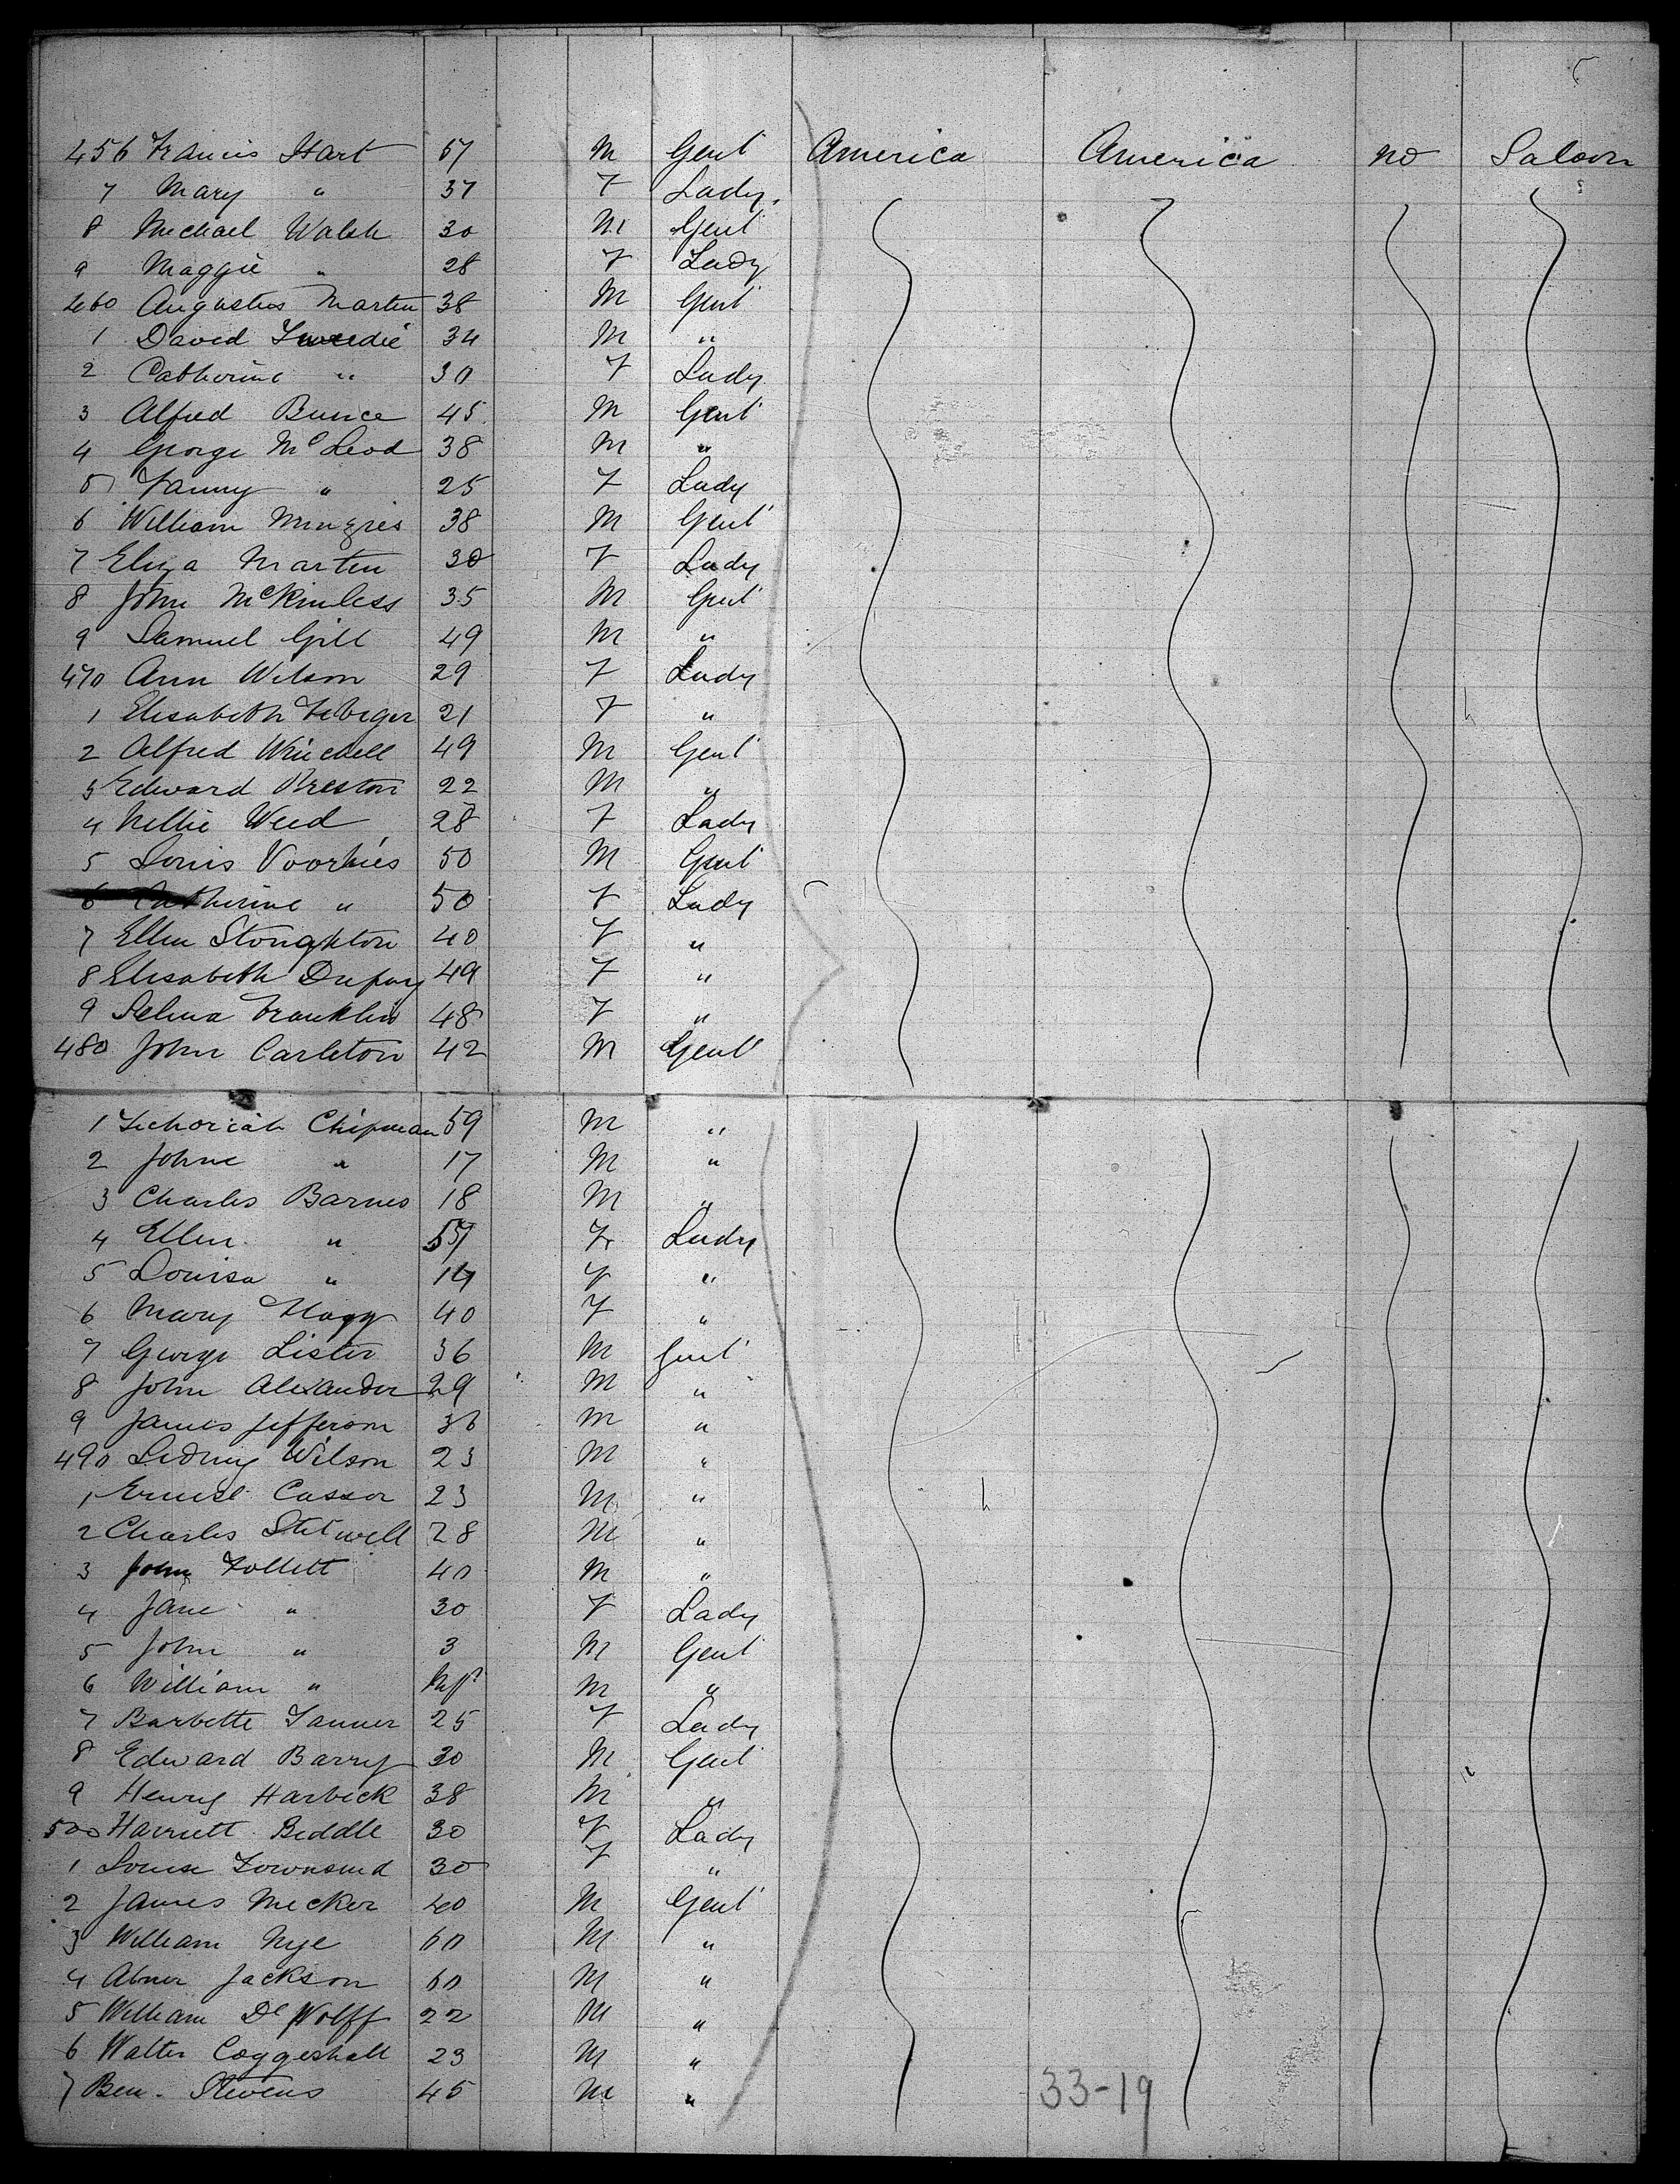 456 Francis Hart 57 M Gent America America no Saloon
7 Mary " 37 F Lady
8 Michael Walsh 30 M Gent
9 Maggie " 28 F Lady
460 Augustus Martin 38 M Gent
1 David Tweedie 34 M "
2 Catherine " 30 F Lady
3 Alfred Bunce 45 M Gent
4 George McLeod 38 M "
5 Fanny " 25 F Lady
6 William Menzies 38 M Gent
7 Eliza Martin 30 F Lady
8 John McKinless 35 M Gent
9 Samuel Gill 49 M "
470 Ann Wilson 29 F Lady
1 Elisabeth 21 F "
2 Alfred Winchell 49 M Gent
3 Edward Preston 22 M "
4 Nellie Weed 28 F Lady
5 Louis Voorhies 50 M Gent
6 Catherine " 50 F Lady
7 Ellen Stoughton 40 F "
8 Elisabeth Dupuy 49 F "
9 Selina Franklin 48 F "
480 John Carleton 42 M Gent
1 Zechoriah Chipman 59 M "
2 Johne " 17 M "
3 Charles Barnes 18 M "
4 Ellen " F Lady
5 Louisa " 14 F "
6 Mary 40 F "
7 George Lister 36 M Gent
8 John Alexander 29 M "
9 James Jefferson 36 M "
490 Ludwig Wilson 23 M "
1 Ernest Casson 23 M "
2 Charles Stilwell 28 M "
3 John Follett 40 M "
4 Jane " 30 F Lady
5 John " 3 M Gent
6 William " Inft M "
7 Barbette Tanner 25 F Lady
8 Edward Barry 30 M Gent
9 Henry Harbick 38 M "
500 Harriett Biddle 30 F Lady
1 Louise Townsend 30 F "
2 James Mecker 40 M Gent
3 William Nye 60 M "
4 Abner Jackson 60 M "
5 William De Wolff 22 M "
6 Walter Coggeshall 23 M "
7 Ben. Stevens 45 M "
33-19